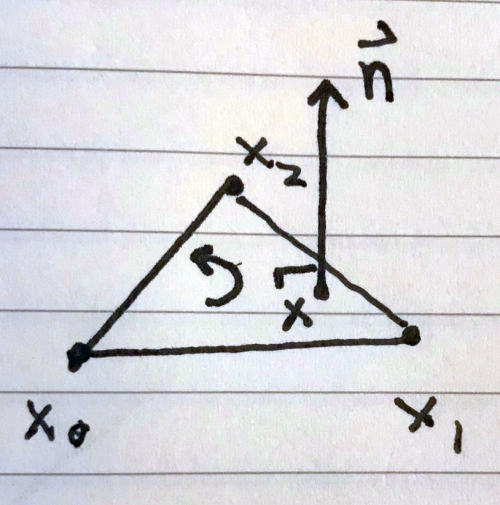 n⃗
x₂
x
x₀
x₁